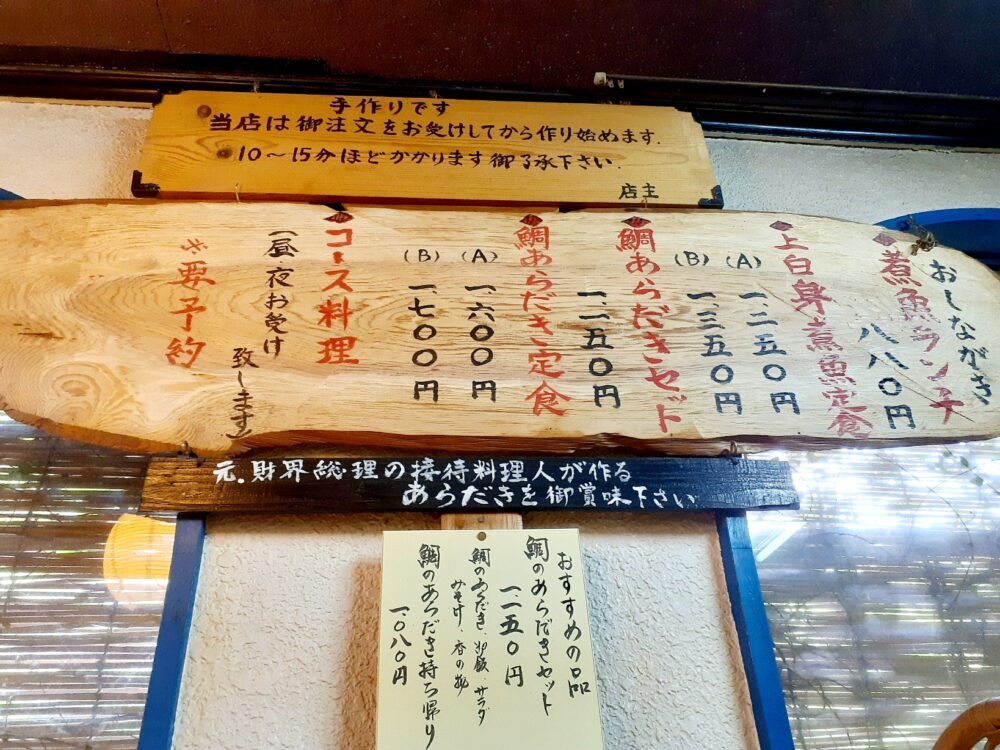 手作りです
当店は御注文をお受けしてから作り始めます.
・10〜15分ほどかかります御了承下さい.
店主
おしながき
煮魚ランチ
八八〇円
上白身煮魚定食
(A) 一、二五〇円
(B) 一、三五〇円
鯛あらだきセット
一、一五〇円
鯛あらだき定食
(A) 一、六〇〇円
(B) 一、七〇〇円
コース料理
(昼・夜お受け
致します)
※要予約
元.財界総理の接待料理人が作る
あらだきを御賞味下さい
おすすめの品
鯛のあらだきセット
一、一五〇円
鯛のあらだき、御飯、サラダ
みそ汁、香の物
鯛のあらだき持ち帰り
一、〇八〇円